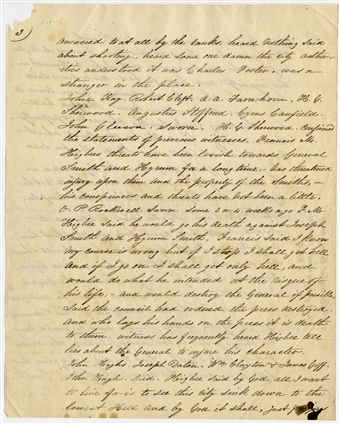 3)
answered to at all by the ranks. heard nothing said
about shooting, heard some one damn the city autho-
rities understood it was Charles Foster. was a
stranger in the place.
John Kay. Robert Clift. A. A. Farnham. H. G.
Sherwood. Augustus Stafford. Cyrus Canfield.
John Gleason. Sworn. H. G. Sherwood Confirmed
the statements of previous witnesses. Francis M.
Higbees threats have been lavish towards General
Smith and Hyrum for a long time,- has threatened
injury upon them and the property of the Smiths,-
his conspiracies and threats have not been a little.
O. P. Rockwell Sworn. Some 3 or 4 weeks ago F. M.
Higbee said he would go his death against Joseph
Smith and Hyrum Smith, Francis said I know
my course is wrong but if I stop I shall get hell
And if I go on it shall get only hell, and
would do what he intended at the risque of
his life,- and would destroy the General if possible
Said the council had ordered the press destroyed
And who lays his hands on the press it is death
to them witness has frequently heard Higbee tell
lies about the General to injure his character.
John Hughs. Joseph Dalton. Wm Clayton & James Goff.
John Hugh. Said. Higbee said by God all I want
to live for is to see this city sunk down to the
lowest Hell and by God it shall, just